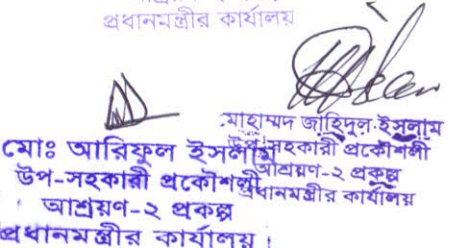 প্রধানমন্ত্রীর কার্যালয়
মোহাম্মদ জাহিদুল ইসলাম
উপ-সহকারী প্রকৌশলী
আশ্রয়ণ-২ প্রকল্প
প্রধানমন্ত্রীর কার্যালয়
মোঃ আরিফুল ইসলাম
উপ-সহকারী প্রকৌশলী
আশ্রয়ণ-২ প্রকল্প
প্রধানমন্ত্রীর কার্যালয়।